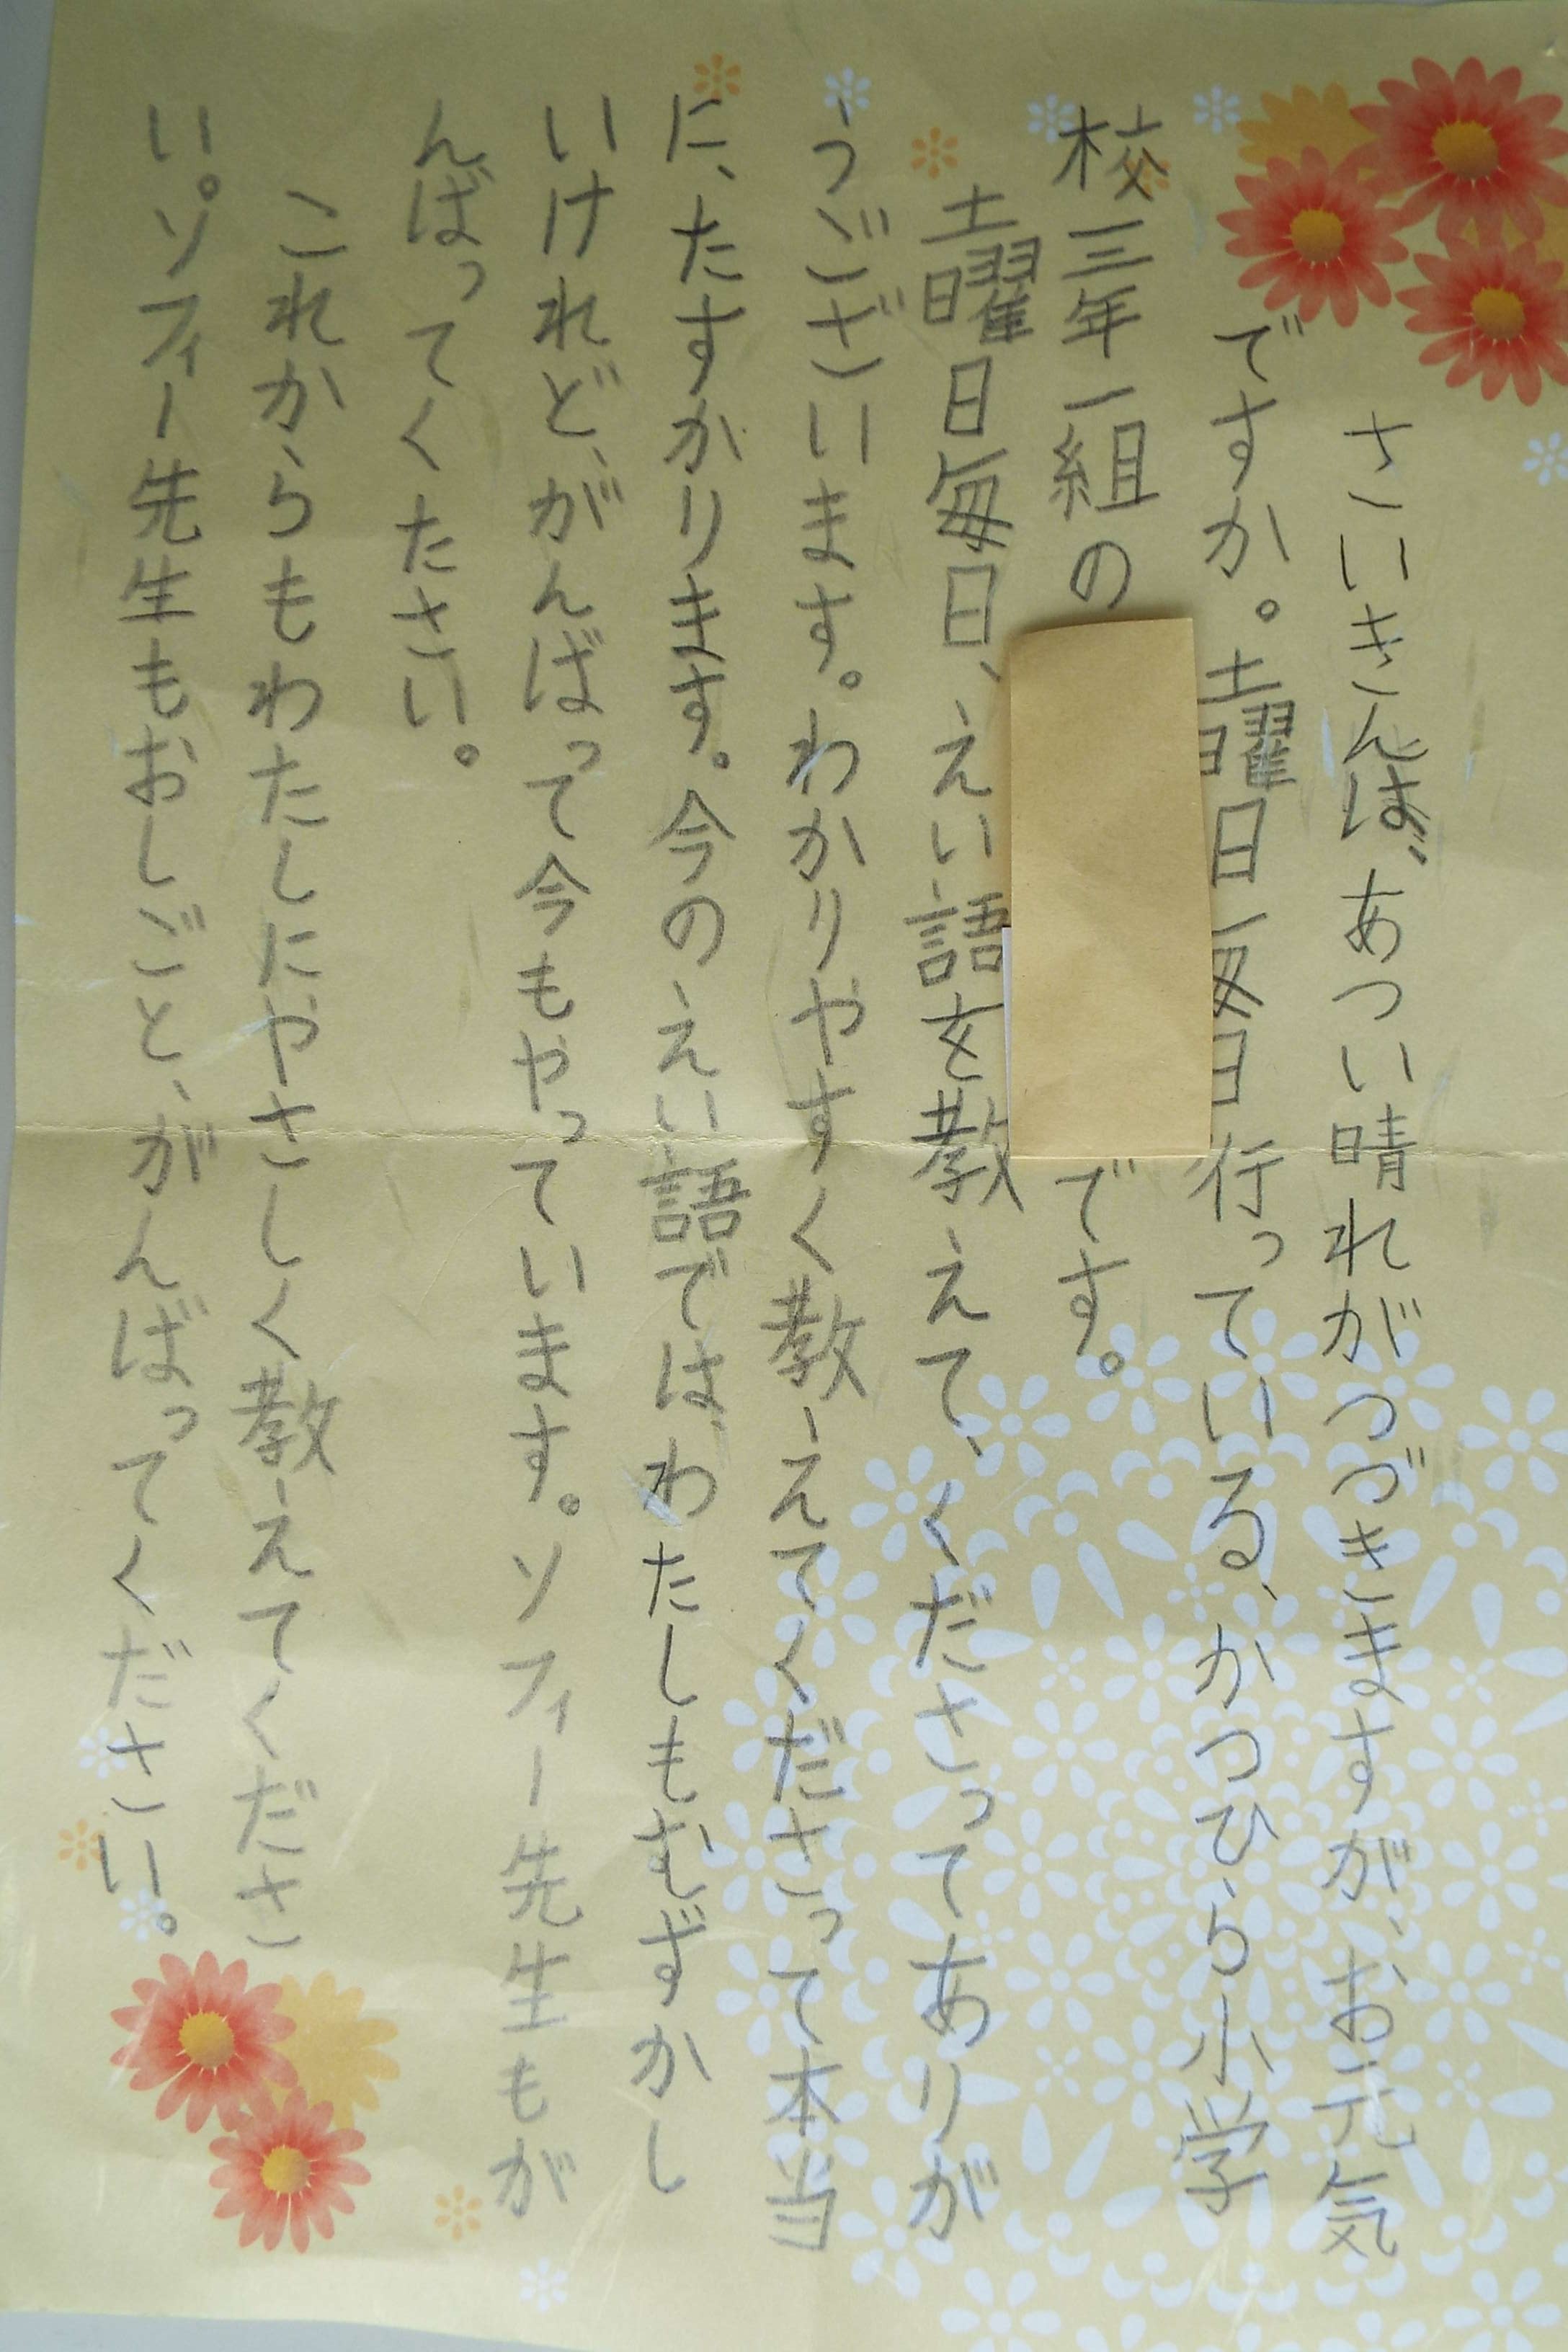 さいきんは、あつい晴れがつづきますが、お元気
ですか。土曜日毎日行っている、かつひら小学
校三年一組の
です。
土曜日毎日、えい語を教えて、くださってありが
うございます。わかりやすく教えてくださって本当
に、たすかります。今のえい語では、わたしもむずかし
いけれど、がんばって今もやっています。ソフィー先生もが
んばってくたさい。
これからもわたしにやさしく教えてくださ
い。ソフィー先生もおしごと、がんばってください。